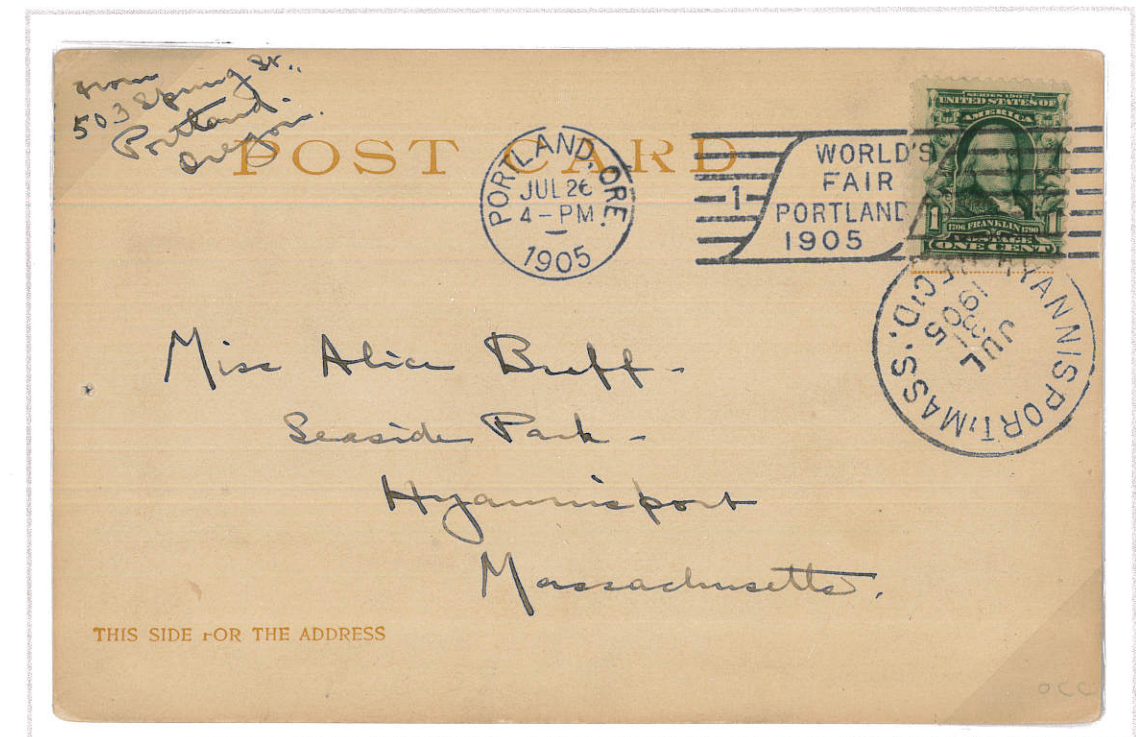 from
503 Spring St.,
Portland.
Oregon.
POST CARD
PORTLAND, ORE.
JUL 26
4-PM
1905
1
WORLD'S
FAIR
PORTLAND
1905
SERIES 1902
UNITED STATES OF
AMERICA
1 1
1706 FRANKLIN 1790
POSTAGE
ONE CENT
HYANNISPORT, MASS.
REC'D.
JUL
31
1905
Miss Alice Buff-
Seaside Park-
Hyannisport
Massachusetts.
THIS SIDE FOR THE ADDRESS
OCC